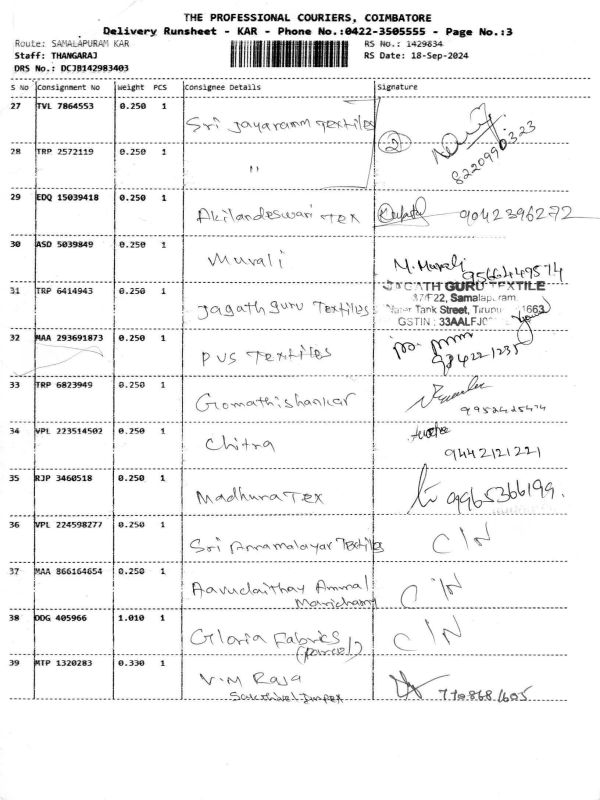 THE PROFESSIONAL COURIERS, COIMBATORE
Delivery Runsheet - KAR - Phone No.:0422-3505555 - Page No.:3
Route: SAMALAPURAM KAR RS No.: 1429834
Staff: THANGARAJ RS Date: 18-Sep-2024
DRS No.: DCJB142983403
S No Consignment No Weight PCS Consignee Details Signature
27 TVL 7864553 0.250 1
Sri Jayaramm Textiles 2
8220990323
28 TRP 2572119 0.250 1
"
29 EDQ 15039418 0.250 1
Akilandeswari Tex 9042396272
30 ASD 5039849 0.250 1
Murali M. Murali
9566449574
31 TRP 6414943 0.250 1 JAGATH GURU TEXTILE
37/F22, Samalapuram
Jagathguru Textiles Water Tank Street, Tirupur 1663
GSTIN : 33AALFJ0
32 MAA 293691873 0.250 1
PVS Textiles 9842271235
33 TRP 6823949 0.250 1
Gomathishankar
34 VPL 223514502 0.250 1
Chitra 9442121221
35 RJP 3460518 0.250 1
Madhura Tex 9965366199.
36 VPL 224598277 0.250 1
Sri Annamalayar Textiles C/N
37 MAA 866164654 0.250 1
Aavudaithay Ammal C/N
Marichamy
38 DDG 405966 1.010 1
Gloria Fabrics C/N
(Parcel)
39 MTP 1320283 0.330 1
V.M Raja
Sakthivel Impex